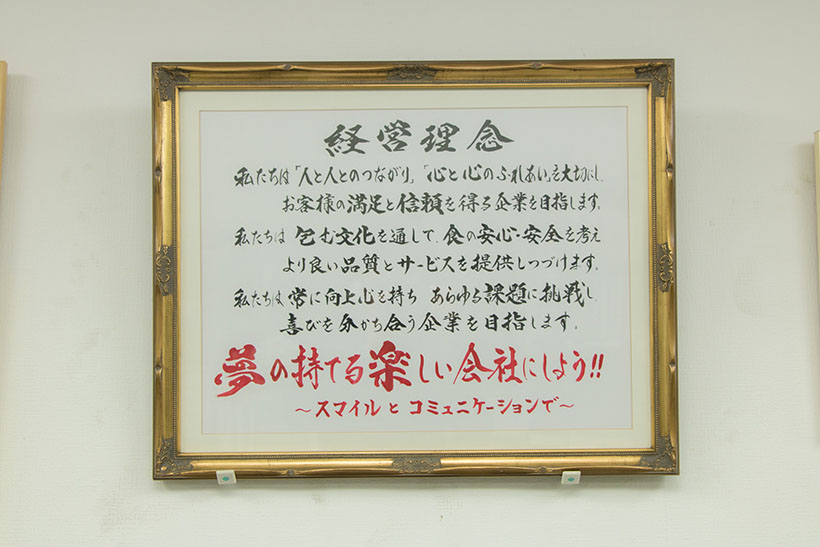 経営理念
私たちは「人と人とのつながり」「心と心のふれあい」を大切にし、
お客様の満足と信頼を得る企業を目指します。
私たちは 包む文化を通して、食の安心・安全を考え
より良い品質とサービスを提供しつづけます。
私たちは 常に向上心を持ち あらゆる課題に挑戦し、
喜びを分かち合う企業を目指します。
夢の持てる楽しい会社にしよう!!
～スマイルとコミュニケーションで～